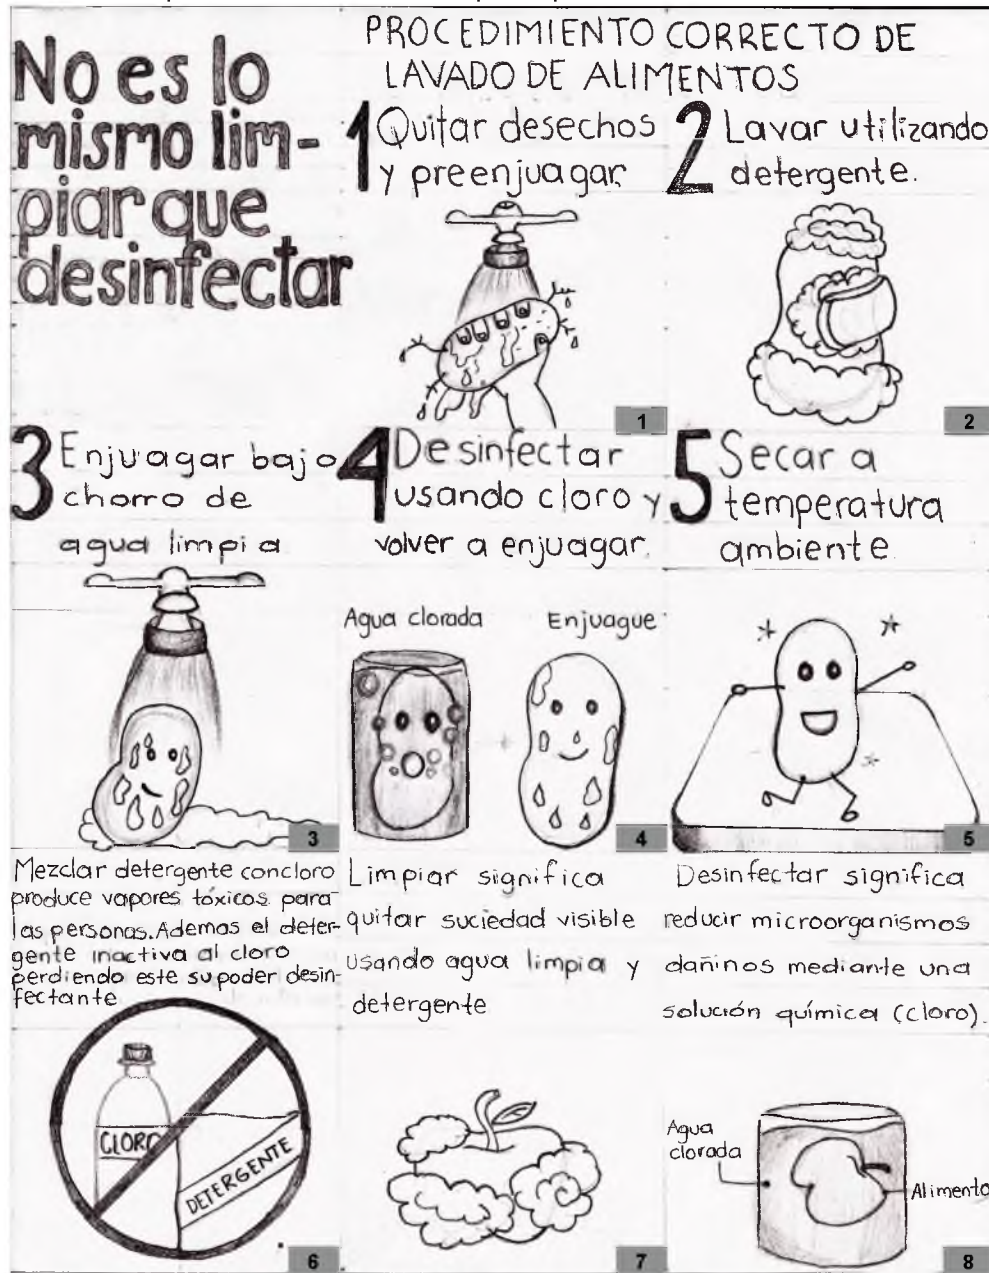 No es lo
mismo lim-
piar que
desinfectar
PROCEDIMIENTO CORRECTO DE
LAVADO DE ALIMENTOS
1 Quitar desechos
y preenjuagar
1
2 Lavar utilizando
detergente.
2
3 Enjuagar bajo
chorro de
agua limpia
3
4 Desinfectar
usando cloro y
volver a enjuagar.
Agua clorada
Enjuague
4
5 Secar a
temperatura
ambiente.
5
Mezclar detergente concloro
produce vapores tóxicos para
las personas. Ademas el deter-
gente inactiva al cloro
perdiendo este su poder desin-
fectante
CLORO
DETERGENTE
6
Limpiar significa
quitar suciedad visible
usando agua limpia y
detergente
7
Desinfectar significa
reducir microorganismos
dañinos mediante una
solución química (cloro).
Agua
clorada
Alimento
8